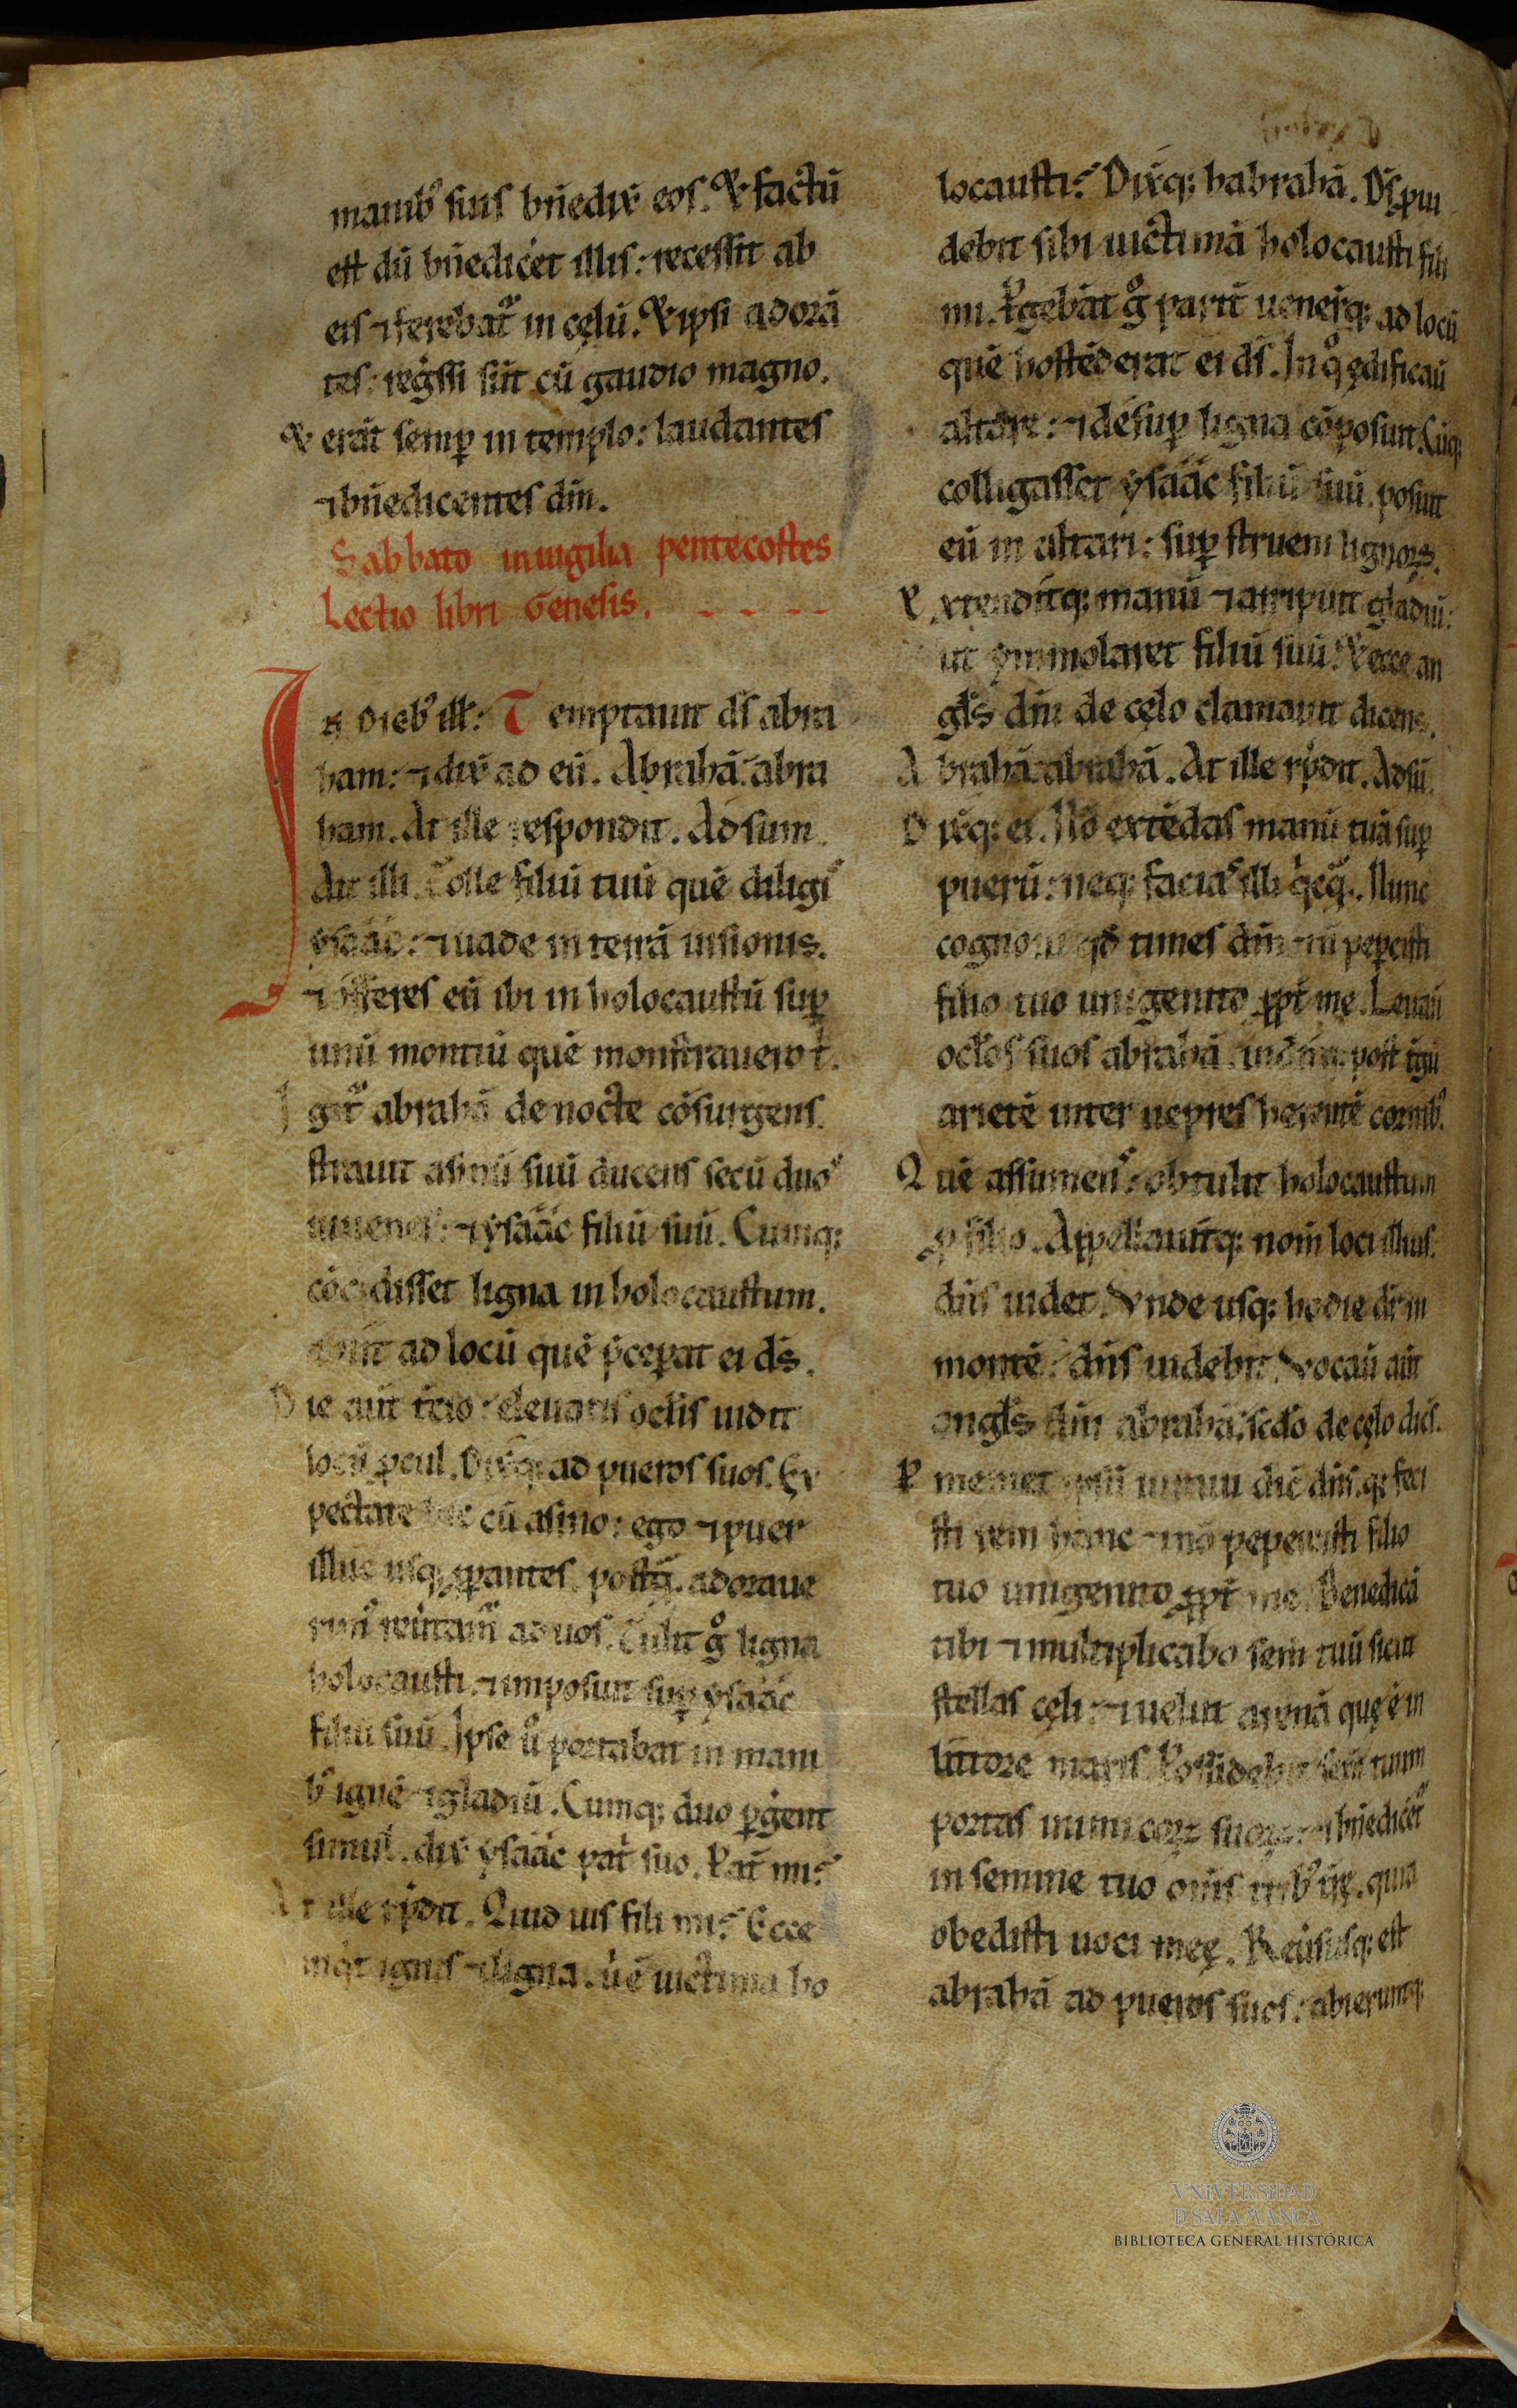 manib᷒ suis bn̄edix̄ eos. & factū
est dū bn̄edicet illis: recessit ab
eis ⁊ ferebat᷑ in cęlū. & ipsi adorā
tes: reg̓ssi sūt cū gaudio magno.
& erāt semꝑ in templo: laudantes
⁊ bn̄edicentes dm̄.
Sabbato in uigilia pentecostes
Lectio libri Genesis.
In dieb᷒ ill̓: Temptauit ds̄ abra
ham: ⁊ dix̄ ad eū. Abrahā: abra
ham. At ille respondit. Adsum.
Ait illi. Tolle filiū tuū quē diligis
ysáác: ⁊ uade in terrā uisionis.
⁊ offeres eū ibi in holocaustū suꝑ
unū montiū quē monstrauero t̄.
Igit᷑ abrahā de nocte cōsurgens.
strauit asinū suū ducens secū duos
iuuenes: ⁊ ysáác filiū suū. Cumq;
cōcidisset ligna in holocaustum.
abiit ad locū quē p̄cepat ei ds̄.
Die aūt t̄cio: eleuatis oclis uidit
locū ꝓcul. Dix̄q; ad pueros suos. Ex
pectate hic cū asino: ego ⁊ puer
illuc usq; ꝓpantes. postq̄. adoraue
rim᷒ reūtam᷒ ad uos. Tulit g̊ ligna
holocausti. ⁊ imposuit suꝑ ysáác
filiū suū. Ipse ů portabat in mani
b᷒ ignē ⁊ gladiū. Cumq; duo ꝑgent
simul. dix̄ ysáác pat̄ suo. Pat̄ mi?
At ille r̄pdit. Quid uis fili mi? Ecce
inq̓t ignis ⁊ ligna. u᷒ ē uictima ho
locausti? Dix̄q; habrahā. Ds̄ ꝓui
debit sibi uictimā holocausti fili
mi. Pgebāt g̊ parit̄ uener̄q; ad locū
quē hostēderat ei ds̄. In q̊ ędificaū
altare: ⁊ desuꝑ ligna cōposuit. Cūq;
colligasset ysáác filiū suū. posuit
eū in altari: suꝑ struem lignoꝝ.
Extenditq; manū ⁊ arripuit gladiū:
ut ymmolaret filiū suū. & ecce an
gls̄ dn̄i de cęlo clamauit dicens.
Abrahā: abrahā. At ille r̄pdit. Adsū.
Dix̄q; ei. Nō extēdas manū tuā suꝑ
puerū: neq; facias illi q̓cq̄. Nunc
cognoui qd̄ times dm̄ ⁊ n̄ peꝑcisti
filio tuo unigenito ꝓpt̄ me. Leuaū
oclos suos abrahā. uiditq; post t̄gū
arietē inter uepres herentē cornib᷒.
Quē assumens: obtulit holocaustum
ꝓ filio. Appellauitq; nom̄ loci illius.
dn̄s uidet. Vnde usq; hodie dr̄ in
monte: dn̄s uidebit. Vocaū aūt
angls̄ dn̄i abrahā. sc̄do de cęlo dicēs.
P memet ipsū iuraui dic̄ dn̄s. q; feci
sti rem hanc ⁊ nō peꝑcisti filio
tuo unigenito ꝓpt̄ me. Benedicā
tibi ⁊ multiplicabo sem̄ tuū sicut
stellas cęli: ⁊ uelut arenā que ē in
littore maris. Possidebit sem̄ tuum
portas inimicoꝝ suoꝝ: ⁊ bn̄edicēt᷑
in semine tuo om̄s t̄rb᷒ t̄rę. quia
obedisti uoci meę. Reūsusq; est
abrahā ad pueros suos: abieruntq;
VNIVERSIDAD
D SALAMANCA
BIBLIOTECA GENERAL HISTÓRICA